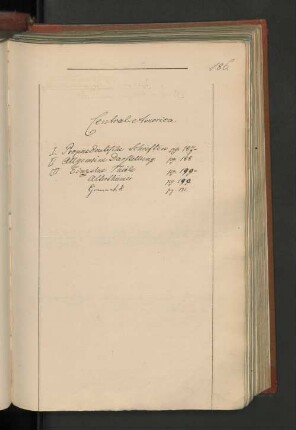 186.
Central-America.
I. Propaedeutische Schriften pg. 187-
II Allgemeine Darstellung pg. 188
III Einzelne Theile pg. 190-
Alterthümer pg. 190
pg. 191.